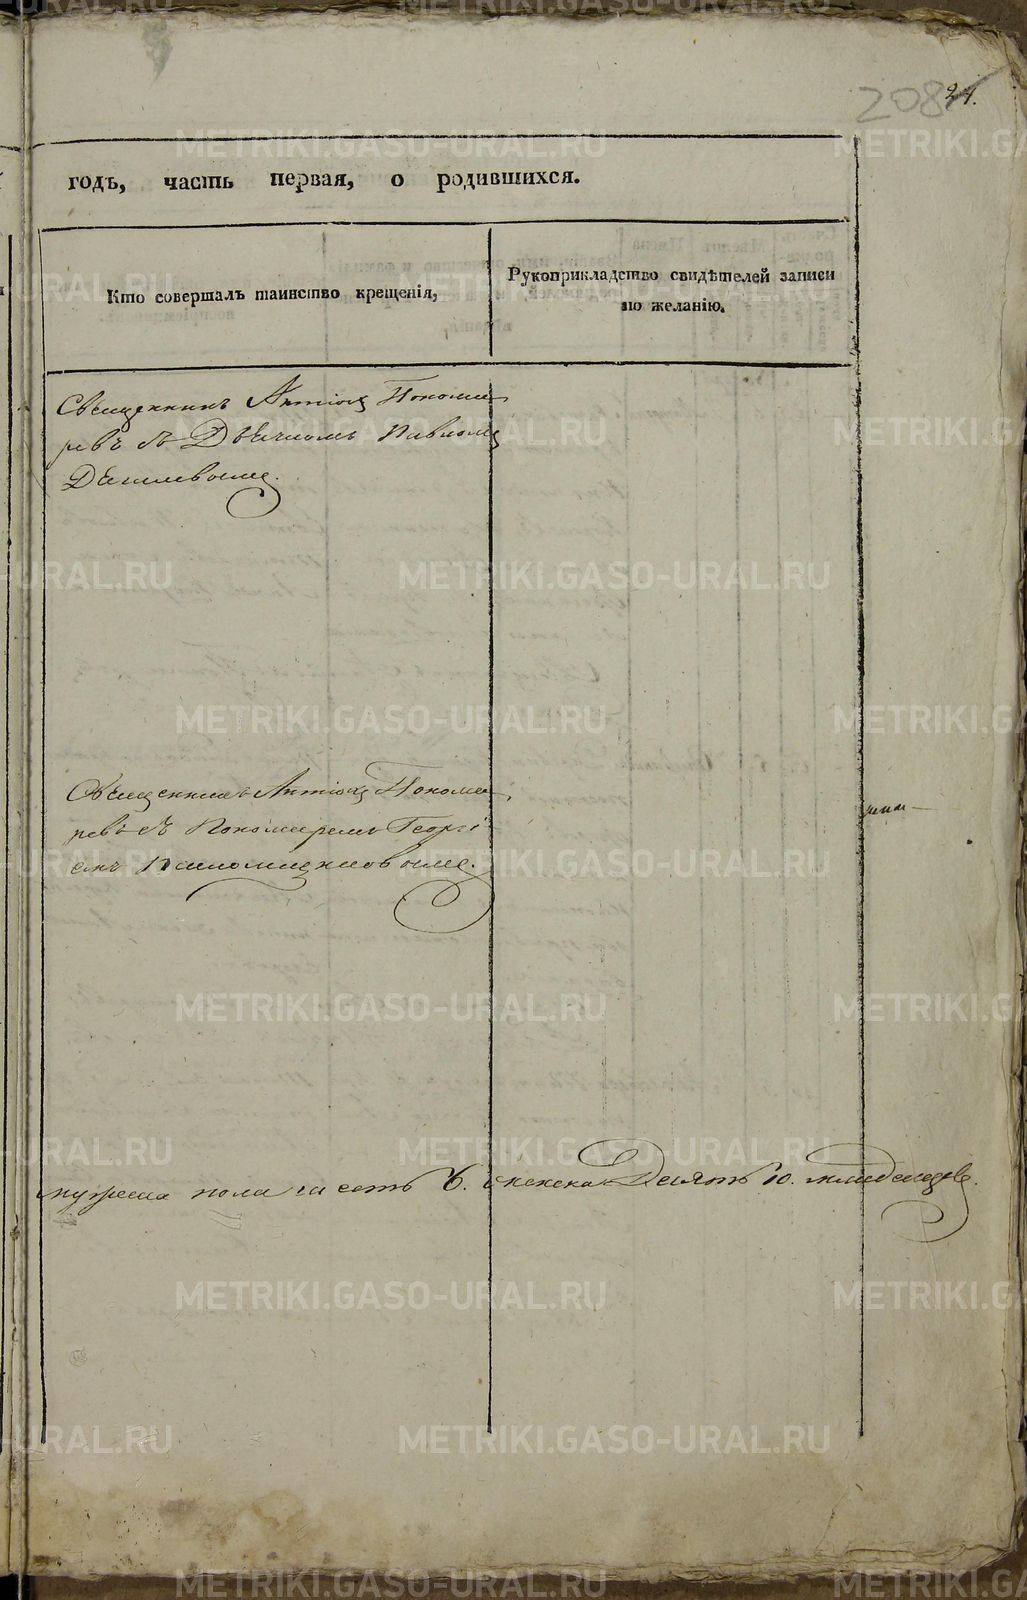 208
24.
годъ, часть первая, о родившихся.
Кто совершалъ таинство крещенія,
Рукоприкладство свидѣтелей записи
по желанію.
Священникъ Антіохъ Понома
ревъ съ Дьячкомъ Павломъ
Священникъ Антіохъ Понома
ревъ съ Пономаремъ Георгі
емъ
мужеска пола шесть 6. женска Десять 10. младенцевъ.
METRIKI.GASO-URAL.RU